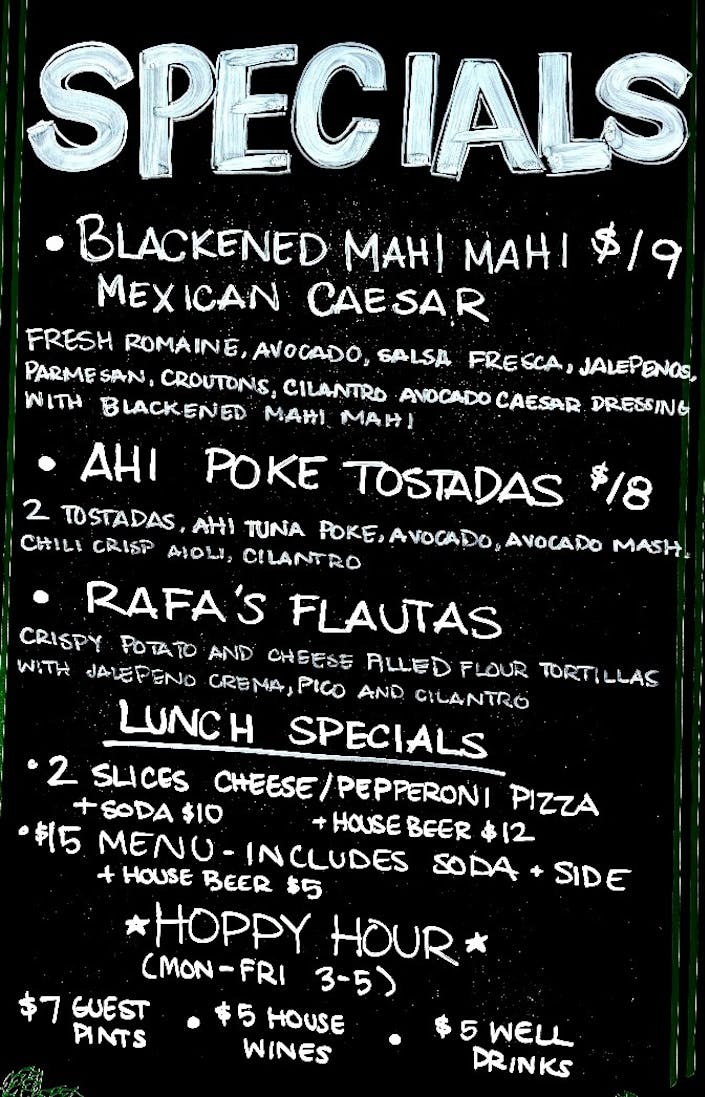 SPECIALS
• BLACKENED MAHI MAHI $19
MEXICAN CAESAR
FRESH ROMAINE, AVOCADO, SALSA FRESCA, JALEPENOS,
PARMESAN, CROUTONS, CILANTRO AVOCADO CAESAR DRESSING
WITH BLACKENED MAHI MAHI
• AHI POKE TOSTADAS $18
2 TOSTADAS, AHI TUNA POKE, AVOCADO, AVOCADO MASH,
CHILI CRISP AIOLI, CILANTRO
• RAFA'S FLAUTAS
CRISPY POTATO AND CHEESE FILLED FLOUR TORTILLAS
WITH JALEPENO CREMA, PICO AND CILANTRO
LUNCH SPECIALS
• 2 SLICES CHEESE/PEPPERONI PIZZA
+ SODA $10 + HOUSE BEER $12
• $15 MENU - INCLUDES SODA + SIDE
+ HOUSE BEER $5
★ HOPPY HOUR ★
(MON-FRI 3-5)
$7 GUEST • $5 HOUSE • $5 WELL
PINTS WINES DRINKS